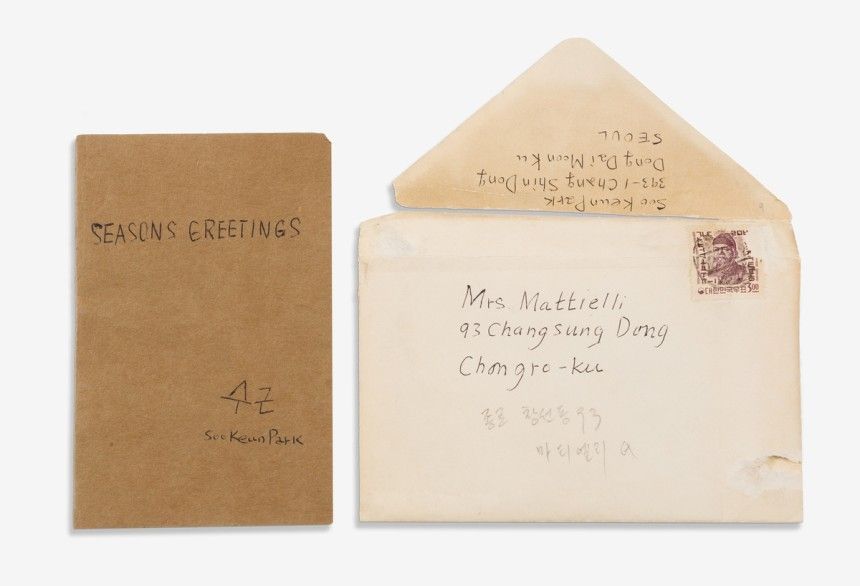 SEASONS GREETINGS
Soo Keun Park
Soo Keun Park
393-1 Chang Shin Dong
Dong Dai Moon Ku
SEOUL
대한민국우표 3.00
Mrs. Mattielli
93 Changsung Dong
Chongro-ku
종로 창선동 93
마티엘리